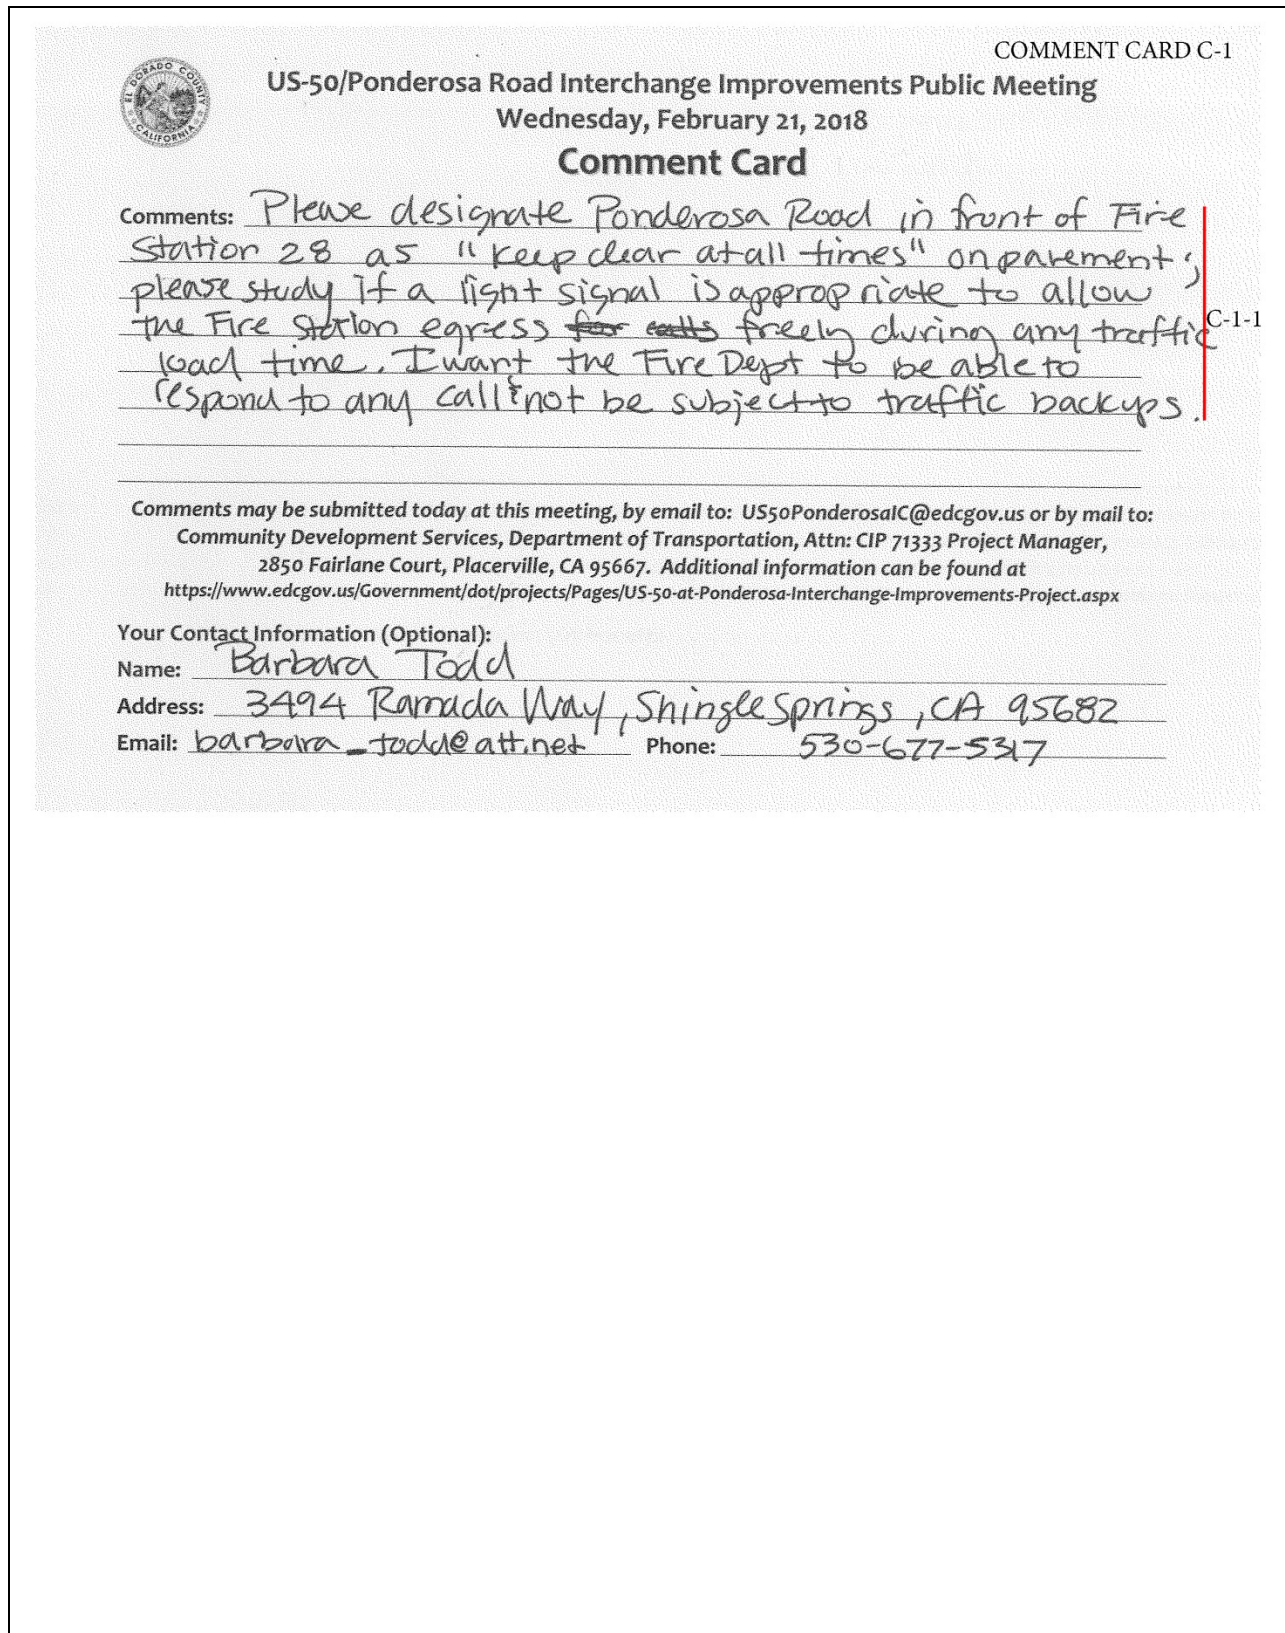 COMMENT CARD C-1
EL DORADO COUNTY
CALIFORNIA
US-50/Ponderosa Road Interchange Improvements Public Meeting
Wednesday, February 21, 2018
Comment Card
Comments: Please designate Ponderosa Road in front of Fire
Station 28 as "keep clear at all times" on pavement;
please study if a light signal is appropriate to allow
the Fire Station egress for calls freely during any traffic
C-1-1
load time. I want the Fire Dept to be able to
respond to any call & not be subject to traffic backups.
Comments may be submitted today at this meeting, by email to: US50PonderosaIC@edcgov.us or by mail to:
Community Development Services, Department of Transportation, Attn: CIP 71333 Project Manager,
2850 Fairlane Court, Placerville, CA 95667. Additional information can be found at
https://www.edcgov.us/Government/dot/projects/Pages/US-50-at-Ponderosa-Interchange-Improvements-Project.aspx
Your Contact Information (Optional):
Name: Barbara Todd
Address: 3494 Ramada Way, Shingle Springs, CA 95682
Email: barbara_todd@att.net Phone: 530-677-5317